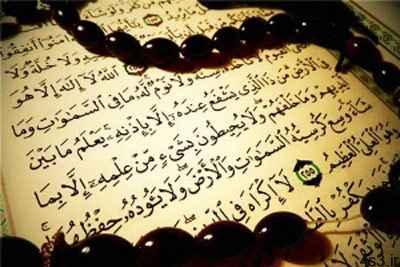 أَنفِقُوا
وَلَا خُلَّةٌ وَلَا
ٱللَّهُ لَآ إِلَٰهَ إِلَّا هُوَ
سِنَةٌ وَلَا نَوْمٌ لَّهُۥ مَا فِي ٱلسَّمَٰوَٰتِ وَمَا
فِي ٱلْأَرْضِ مَن ذَا ٱلَّذِي يَشْفَعُ عِندَهُۥٓ إِلَّا بِإِذْنِهِۦ يَعْلَمُ مَا بَيْنَ
أَيْدِيهِمْ وَمَا خَلْفَهُمْ وَلَا يُحِيطُونَ بِشَيْءٍ مِّنْ عِلْمِهِۦٓ إِلَّا بِمَا
شَآءَ وَسِعَ كُرْسِيُّهُ ٱلسَّمَٰوَٰتِ وَٱلْأَرْضَ وَلَا يَـُٔودُهُۥ حِفْظُهُمَا
وَهُوَ ٱلْعَلِيُّ ٱلْعَظِيمُ ٢٥٥ لَآ إِكْرَاهَ فِي